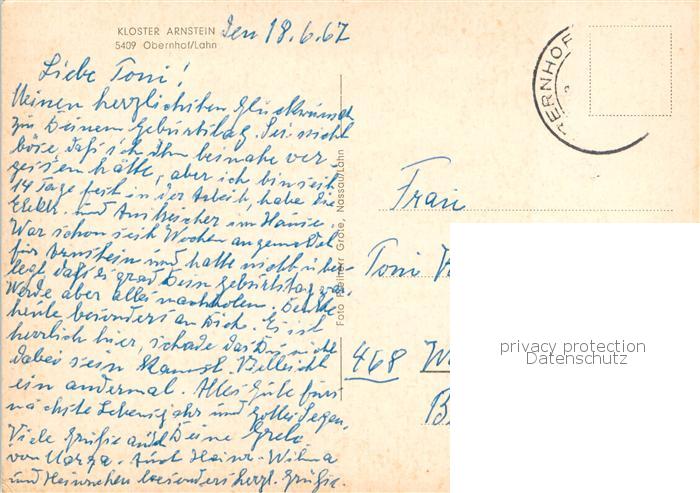 KLOSTER ARNSTEIN
5409 Obernhof/Lahn
Den 18.6.67
Liebe Toni!
Meinen herzlichsten Glückwunsch
zu Deinem Geburtstag. Sei nicht
böse, daß ich ihn beinahe ver-
gessen hätte, aber ich bin seit
14 Tage fest in der Arbeit, habe die
Elektr. und Anstreicher im Hause.
War schon seit Wochen angemeldet
für Arnstein und hatte nicht über-
legt, daß es grad Dein Geburtstag war.
Werde aber alles nachholen. Denke
heute besonders an Dich. Es ist
herrlich hier, schade daß Du nicht
dabei sein kannst. Vielleicht
ein andermal. Alles Gute fürs
nächste Lebensjahr und Gottes Segen.
Viele Grüße auch Deine Grete
von Marga. Auch Heinr. Wilma
und Heinrichen besonders herzl. Grüße.
Foto Freiherr Grote, Nassau/Lahn
BERNHOF
Frau
Toni
468
privacy protection
Datenschutz